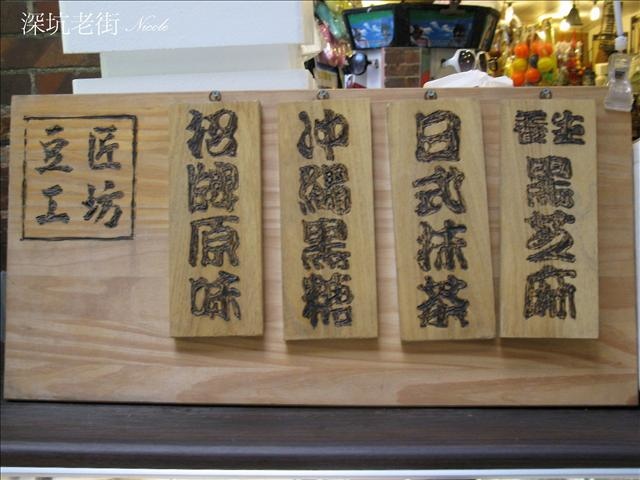 深坑老街 Nicole
豆匠
工坊
招牌原味
沖繩黑糖
日式抹茶
養生
黑芝麻